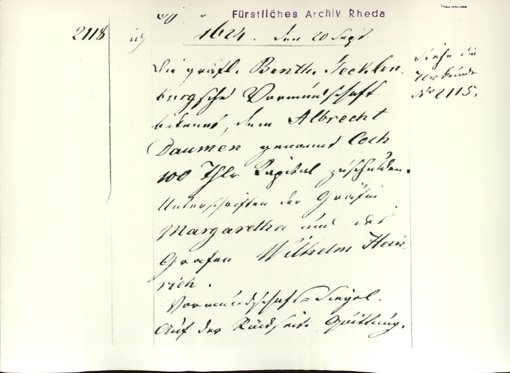 Fürstliches Archiv Rheda
2118
1624. den 20 Sept
Die gräfl. Benth. Tecklen-
burgsche Vormundschaft
bekennt, dem Albrecht
Daumen genannt Coch
100 Thlr Kapital zu schulden.
Unterschriften der Gräfin
Margaretha und des
Grafen Wilhelm Hein-
rich.
Vormundschafts-Siegel.
Auf der Rückseite Quittung.
Siehe die
Urkunde
No 2115.